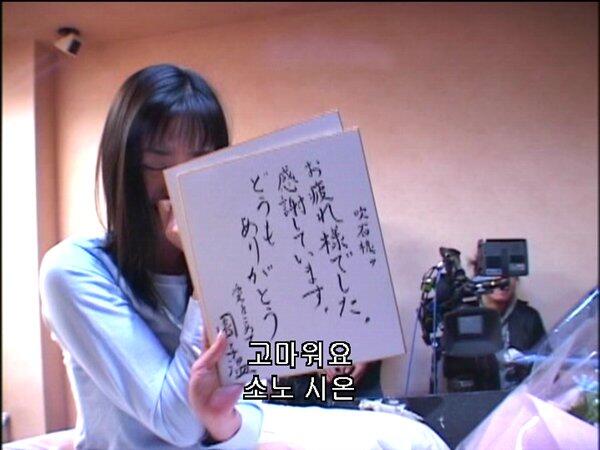 吹石様
お疲れ様でした。
感謝しています。
どうも
ありがとう
愛をこめて
園子温
고마워요
소노 시온